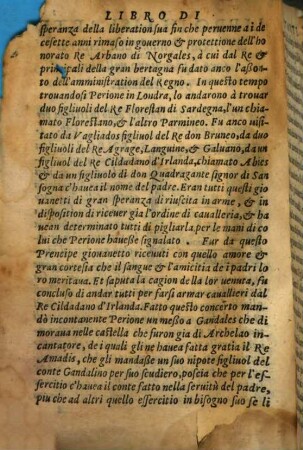 LIBRO DI
speranza della liberation sua fin che peruenne a i de
cesette anni rimaso in gouerno & protettione dell'ho
norato Re Arbano di Norgales, à cui dal Re &
principali della gran bertagna fu dato anco l'asson
to dell'amministration del Regno. In questo tempo
trouandosi Perione in Londra, lo andarono à trouar
due figliuoli del Re Florestan di Sardegna, l'un chia
mato Florestano, & l'altro Parmineo. Fu anco uisi
tato da Vagliados figliuol del Re don Bruneo, da duo
figliuoli del Re Agrage, Languine, & Galuano, da un
figliuol del Re Cildadano d'Irlanda, chiamato Abies
& da un figliuolo di don Quadragante signor di San
sogna c'hauea il nome del padre. Eran tutti questi gio
uanetti di gran speranza di riuscita in arme, & in
dispositìon di riceuer gia l'ordine di caualleria, & ha
uean determinato tutti di pigliarla per le mani di co
lui che Perione hauesse signalato. Fur da questo
Prencipe giouanetto riceuuti con quello amore &
gran cortesia che il sangue & l'amicitia de i padri lo
ro meritaua. Et saputa la cagion della lor uenuta, fu
concluso di andar tutti per farsi armar cauallieri dal
Re Cildadano d'Irlanda. Fatto questo concerto man
dò incontanente Perione un messo a Gandales che di
moraua nelle castella che furon gia di Archelao in
cantatore, de i quali gli ne hauea fatta gratia il Re
Amadis, che gli mandasse un suo nipote figliuol del
conte Gandalino per suo scudiero, poscia che per l'es
sercitio c'hauea il conte fatto nella seruitù del padre,
piu che ad altri quello essercitio in bisogno suo se li